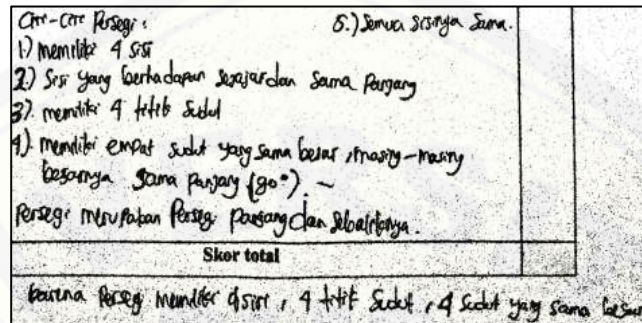 Ciri-Ciri Persegi :
5.) Semua sisinya Sama.
1.) memiliki 4 sisi
2.) Sisi yang berhadapan sejajar dan Sama Panjang
3.) memiliki 4 titik Sudut
4.) memiliki empat sudut yang sama besar, masing-masing
besarnya Sama Panjang (90°). ~
Persegi merupakan Persegi Panjang dan sebaliknya.
Skor total
karena Persegi memiliki 4 sisi, 4 titik Sudut, 4 Sudut yang sama besar